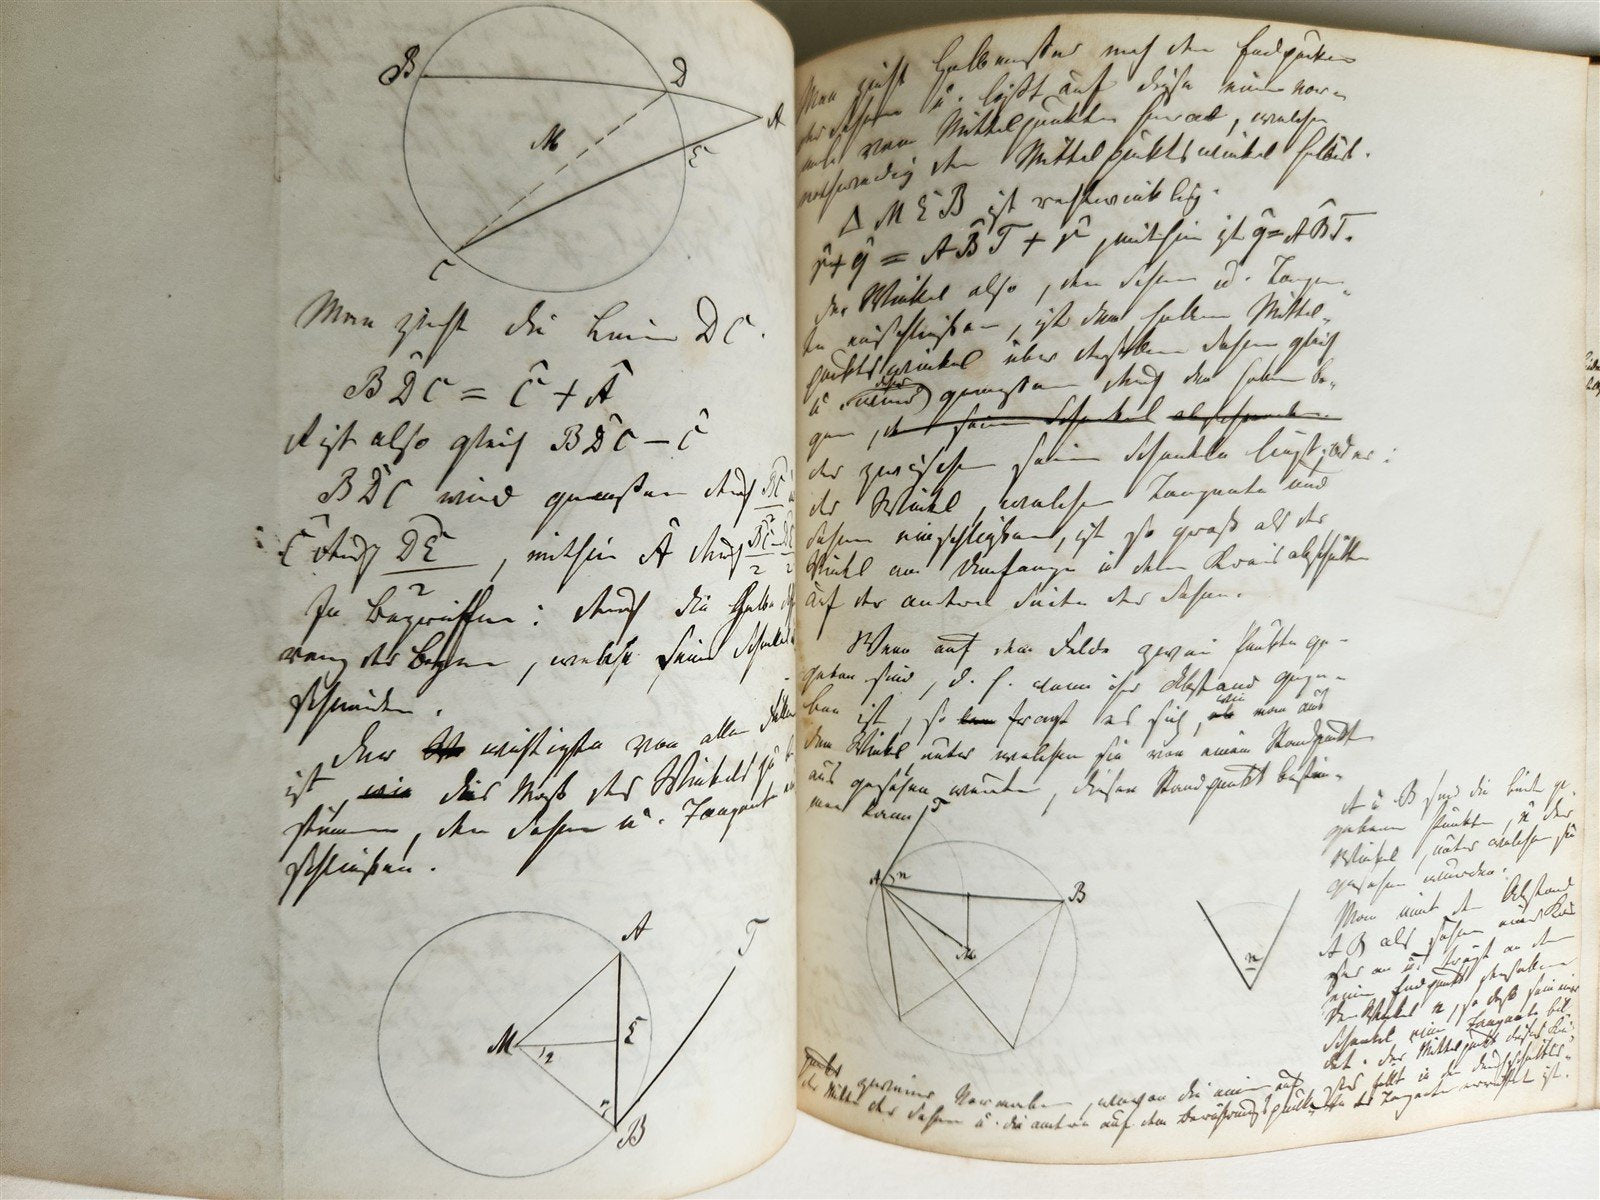 B
D
A
M
E
C
Man zieht die Linie DC.
BD̂C = Ĉ + Â
A ist also gleich BD̂C − Ĉ
BD̂C wird gemessen durch BC
Ĉ durch DE/2, mithin Â durch BC/2 − DE/2
In Begriffen: durch die halbe
der Bogen, welche seine Schenkel
schneiden.
Der wichtigste von allen Fällen
ist, das Maß des Winkels zu
stimmen, den Sehne u. Tangente
schließen.
A
T
M
E
B
Man zieht Halbmesser nach den Endpunkten
der Sehne u. läßt auf diese eine Nor-
male vom Mittelpunkte herab, welche
nothwendig den Mittelpunktswinkel halbirt.
Δ MEB ist rechtwinklig.
= AB̂T + , mithin ist = AB̂T.
Der Winkel also, den Sehne u. Tangen-
te einschließen, ist dem halben Mittel-
punktswinkel über derselben Sehne gleich
u. gemessen durch den halben Bo-
gen,
der zwischen seinen Schenkeln liegt; oder:
der Winkel, welchen Tangente und
Sehne einschließen, ist so groß als der
Winkel am Umfange in dem Kreisabschnitte
auf der andern Seite der Sehne.
Wenn auf dem Felde zwei Punkte ge-
geben sind, d. h. wenn ihr Abstand gege-
ben ist, so fragt es sich, wie man aus
dem Winkel, unter welchem sie von einem Standpunkt
aus gesehen werden, diesen Standpunkt bestim-
men kann.
T
A
n
B
M
n
A u. B sind die beiden ge-
gebenen Punkte, n der
Winkel, unter welchem sie
gesehen wurden.
Man nimt den Abstand
AB als Sehne eines Krei-
ses an u. trägt an den
einen Endpunkt derselben
den Winkel n, so daß sein einer
Schenkel eine Tangente bil-
det. Der Mittelpunkt dieses Krei-
ses fällt in den Durchschnitts-
punkt zweier Normalen, wovon die eine auf
der Mitte der Sehne u. die andere auf dem Berührungspunkte der Tangente errichtet ist.